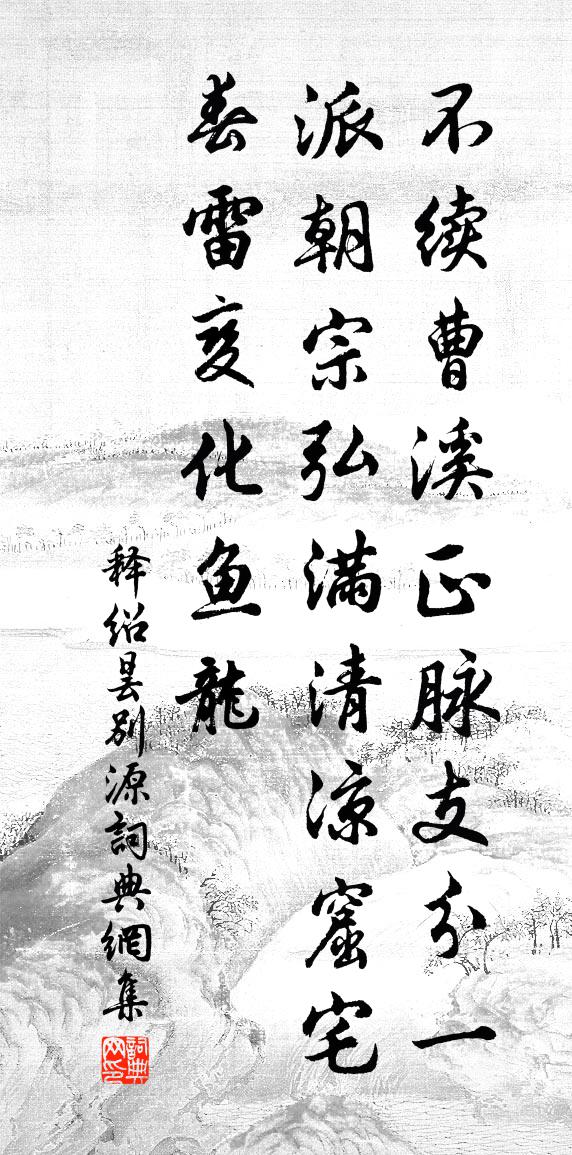 不续曹溪正脉支分一
派朝宗弘满清凉窟宅
春雷变化鱼龙
释绍昙别源詞典網集
詞典网印